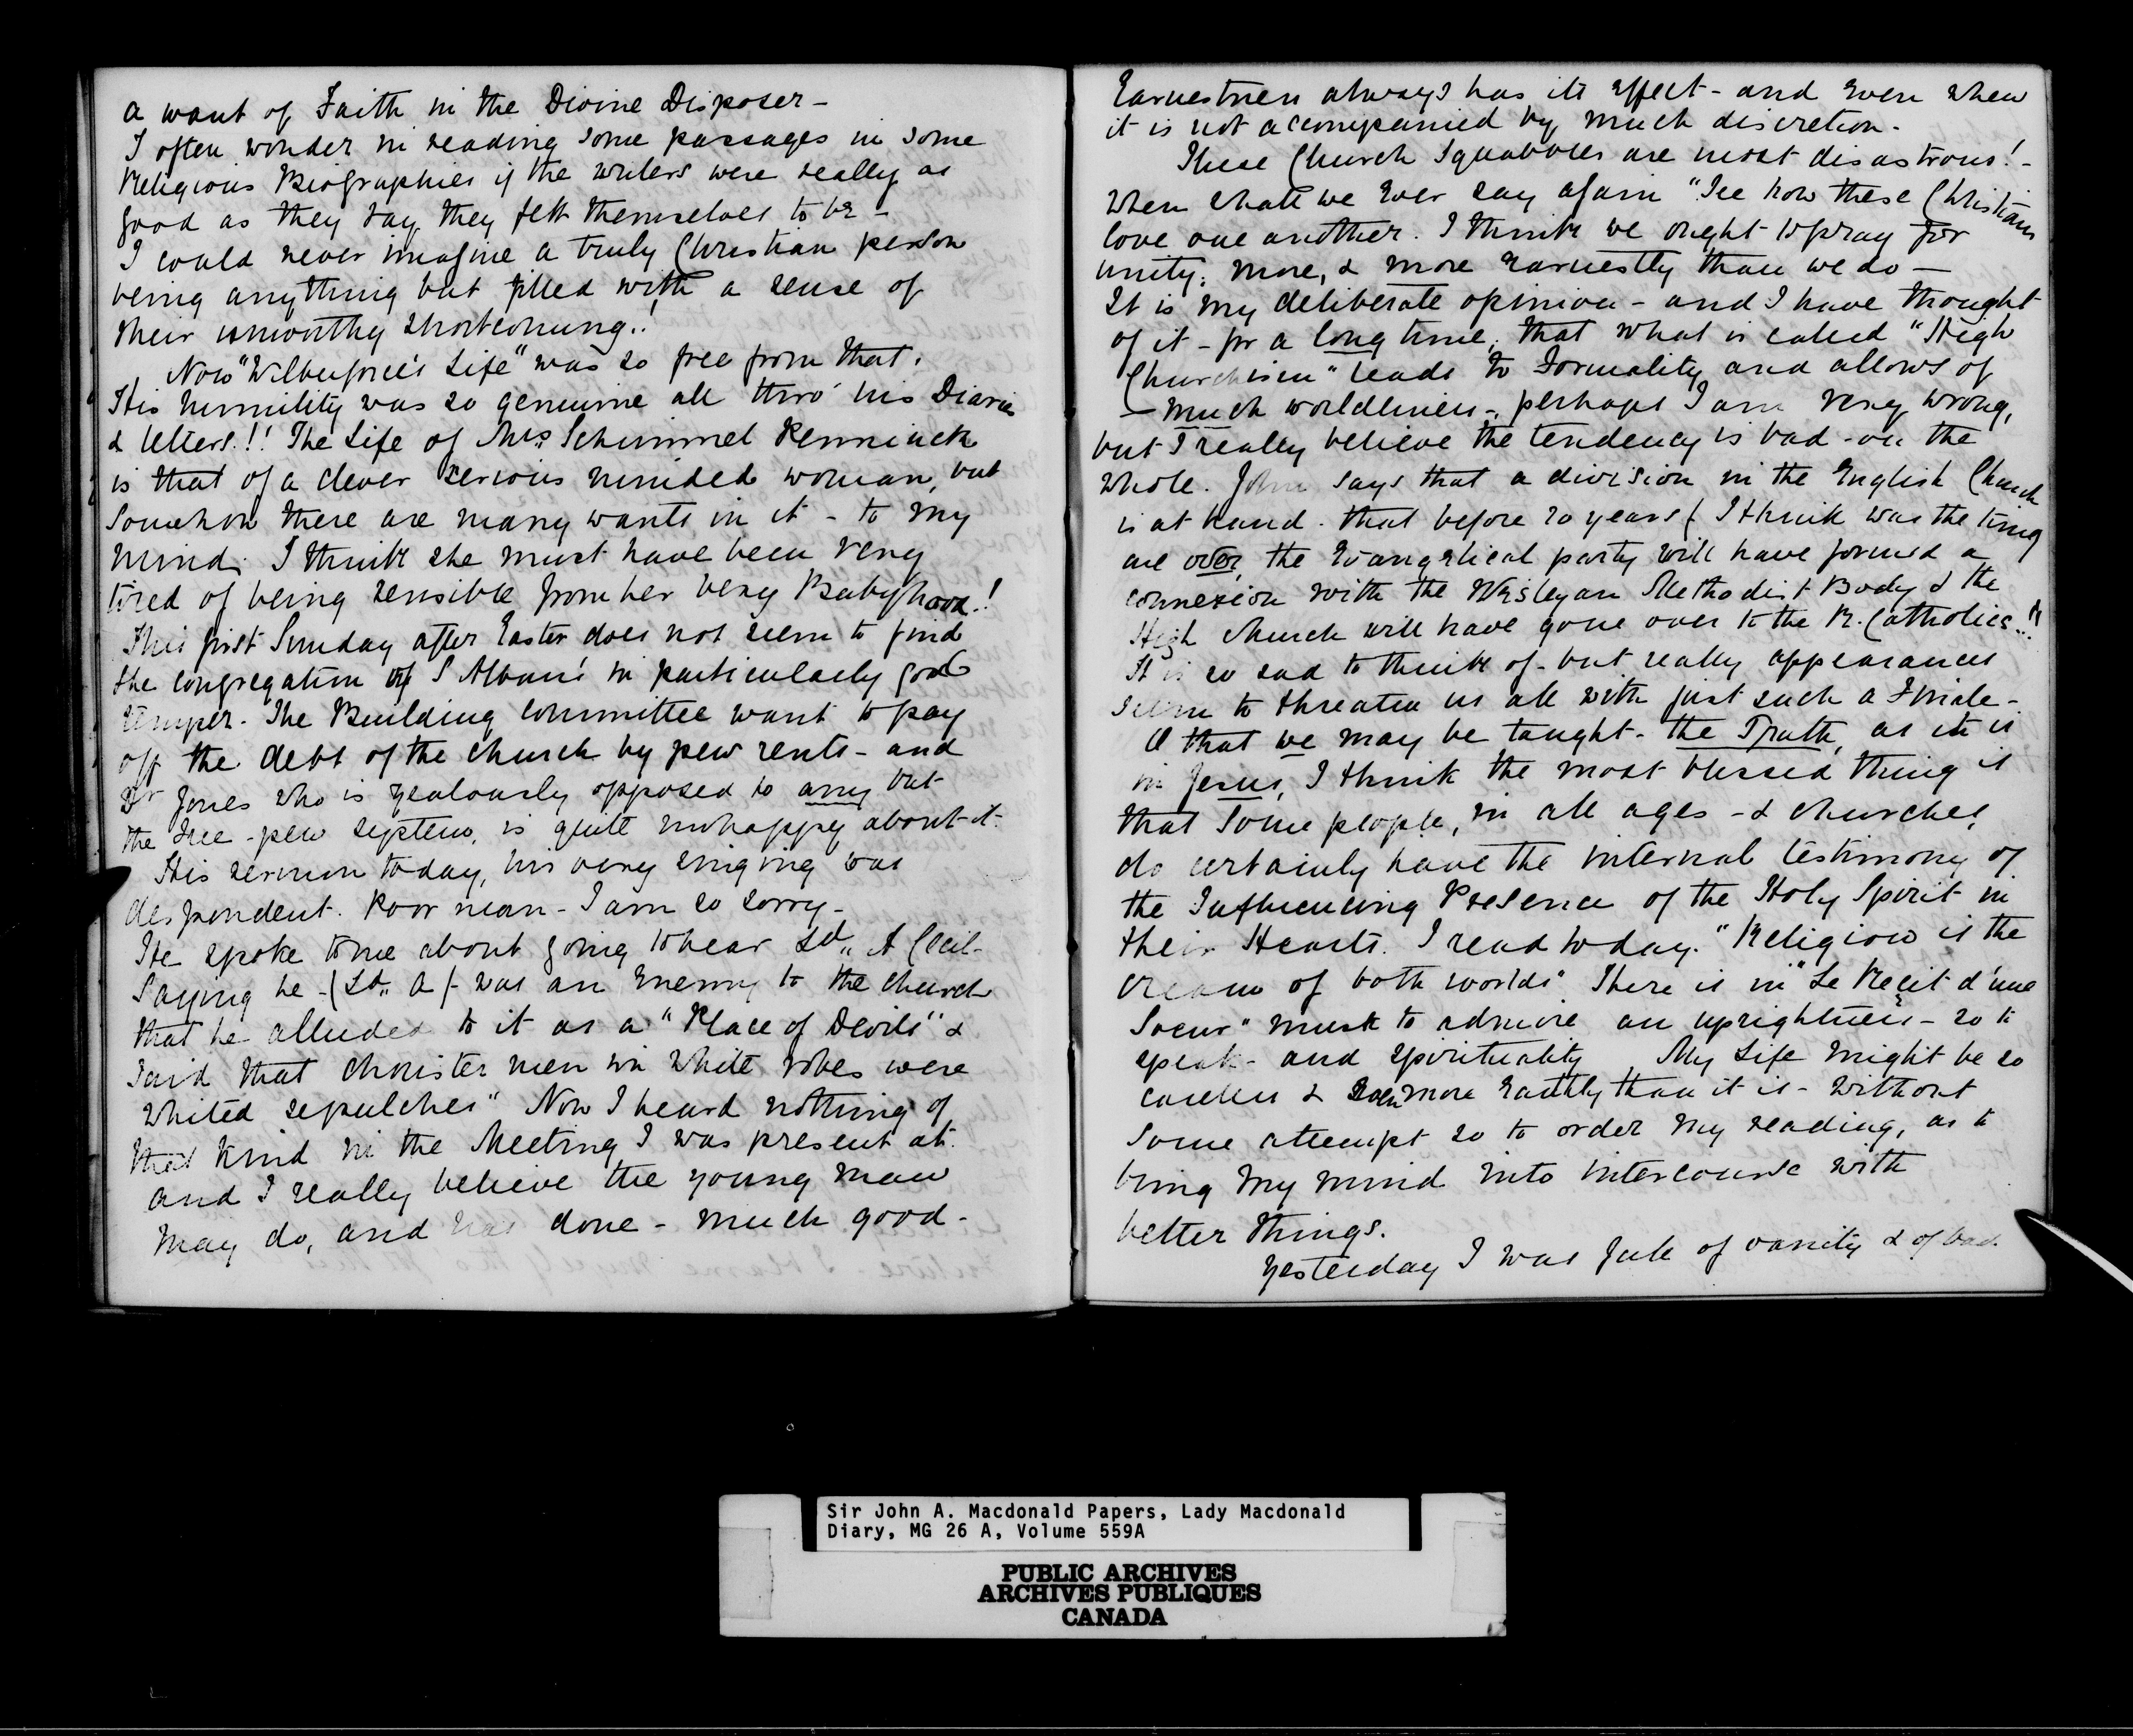 a want of Faith in the Divine Disposer -
I often wonder in reading some passages in some
Religious Biographies if the writers were really as
good as they say they felt themselves to be -
I could never imagine a truly Christian person
being anything but filled with a sense of
their unworthy shortcoming..!
Now "Wilberforce's Life" was so free from that.
His humility was so genuine all thro' his Diaries
& letters.!! The Life of Mrs Schimmel Penninck
is that of a clever serious minded woman, but
somehow there are many wants in it - to my
mind. I think she must have been very
tired of being sensible from her very Babyhood.!
This first Sunday after Easter does not seem to find
the congregation of S Alban's in particularly good
temper. The Building Committee want to pay
off the debt of the church by pew rents - and
Dr Jones who is zealously opposed to any but
the free-pew system, is quite unhappy about it.
His sermon today, his very singing was
despondent. Poor man - I am so sorry -
He spoke to me about going to hear Ld,, A Cecil -
Saying he - (Ld,, A) - was an Enemy to the church
that he alluded to it as a "Place of Devils" &
said that chorister men in white robes were
whited sepulchers" Now I heard nothing of
that kind in the Meeting I was present at.
and I really believe the young man
may do, and has done - much good -
Earnestness always has its effect - and even when
it is not accompanied by much discretion.
These Church Squabbles are most disastrous! -
When shall we ever say again "See how these Christians
love one another. I think we ought to pray for
unity: more, & more earnestly than we do -
It is my deliberate opinion - and I have thought
of it - for a long time, that what is called "High
Churchism" leads to Formality and allows of
- much worldliness -, perhaps I am very wrong,
but I really believe the tendency is bad - on the
whole. John says that a division in the English Church
is at hand. that before 20 years (I think was the time)
are over, the Evangelical party will have formed a
connexion with the Wesleyan Methodist Body & the
High Church will have gone over to the R. Catholics..!!
It is so sad to think of - but really appearances
seem to threaten us all with just such a Finale -
O that we may be taught - the Truth, as it is
in Jesus, I think the most blessed thing is
that Some people, in all ages - & churches,
do certainly have the internal testimony of
the Influencing Presence of the Holy Spirit in
their Hearts. I read today. "Religion is the
cream of both worlds" There is in "Le Recit d'une
Soeur" much to admire an uprightness - so to
speak - and spirituality My Life might be so
careless & even more Earthly than it is - without
some attempt so to order my reading, as to
bring my mind into intercourse with
better things.
Yesterday I was full of vanity & of bad
Sir John A. Macdonald Papers, Lady Macdonald
Diary, MG 26 A, Volume 559A
PUBLIC ARCHIVES
ARCHIVES PUBLIQUES
CANADA